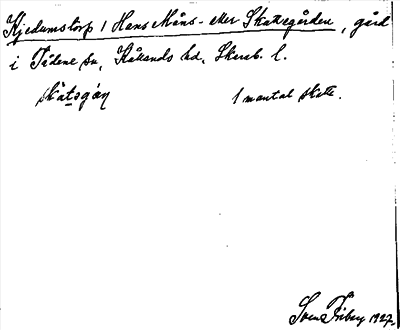 Kjedumstorp 1 Hans Måns- eller Skattegården, gård
i Tådene sn, Kållands hd, Skarab. l.
skàtsgán 1 mantal skatte.
Sven Friberg 1927.